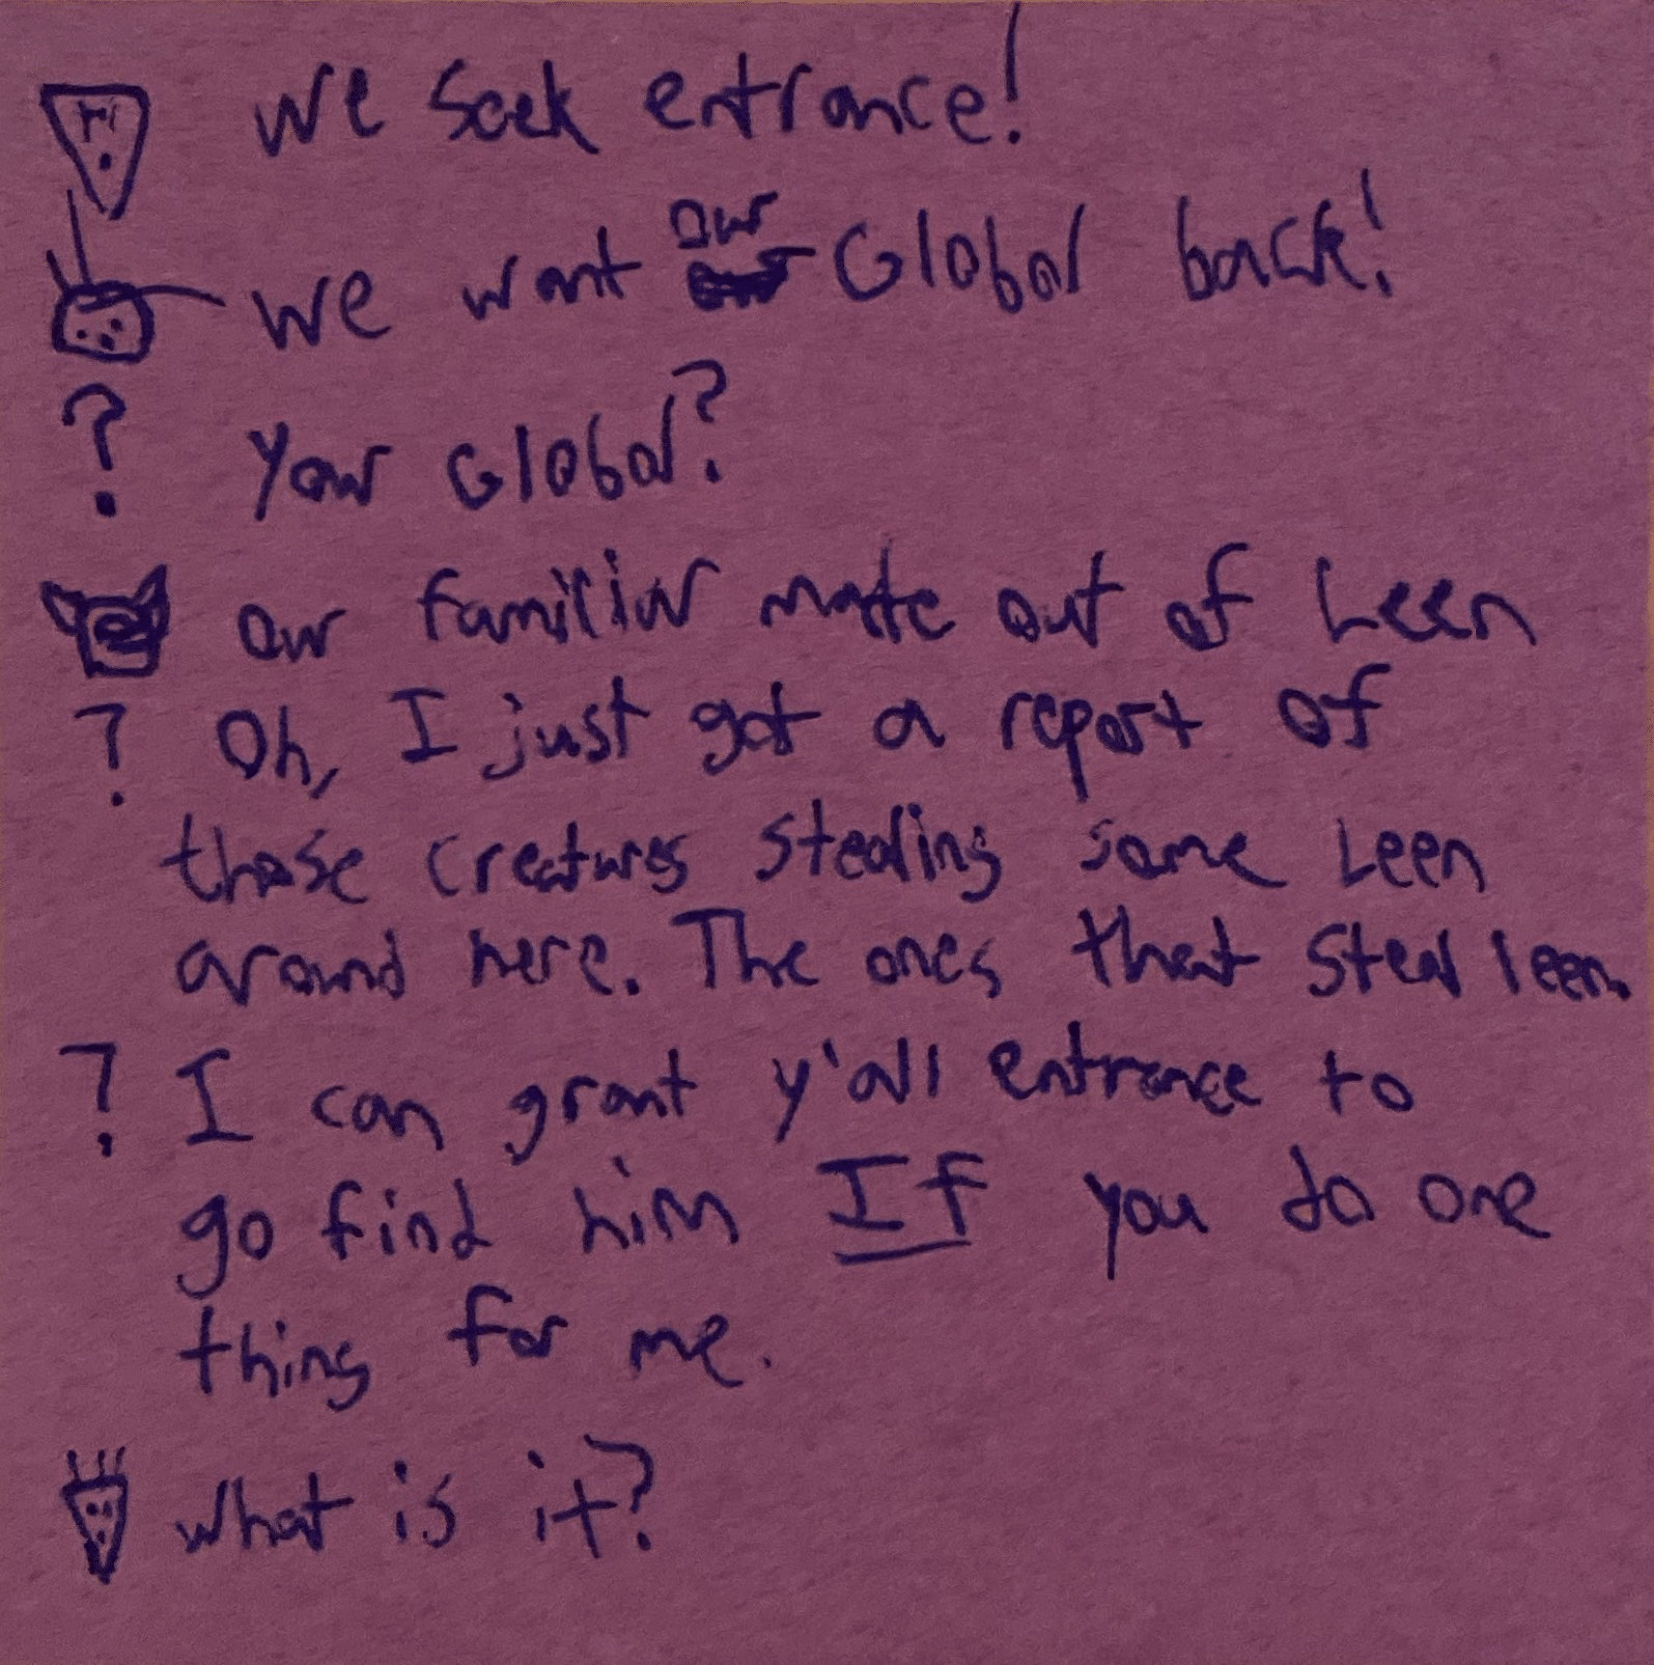 We seek entrance!
We want our Global back!
? Your Global?
our familiar made out of Leen
? Oh, I just got a report of
those creatures stealing some Leen
around here. The ones that steal leen.
? I can grant y'all entrance to
go find him If you do one
thing for me.
What is it?